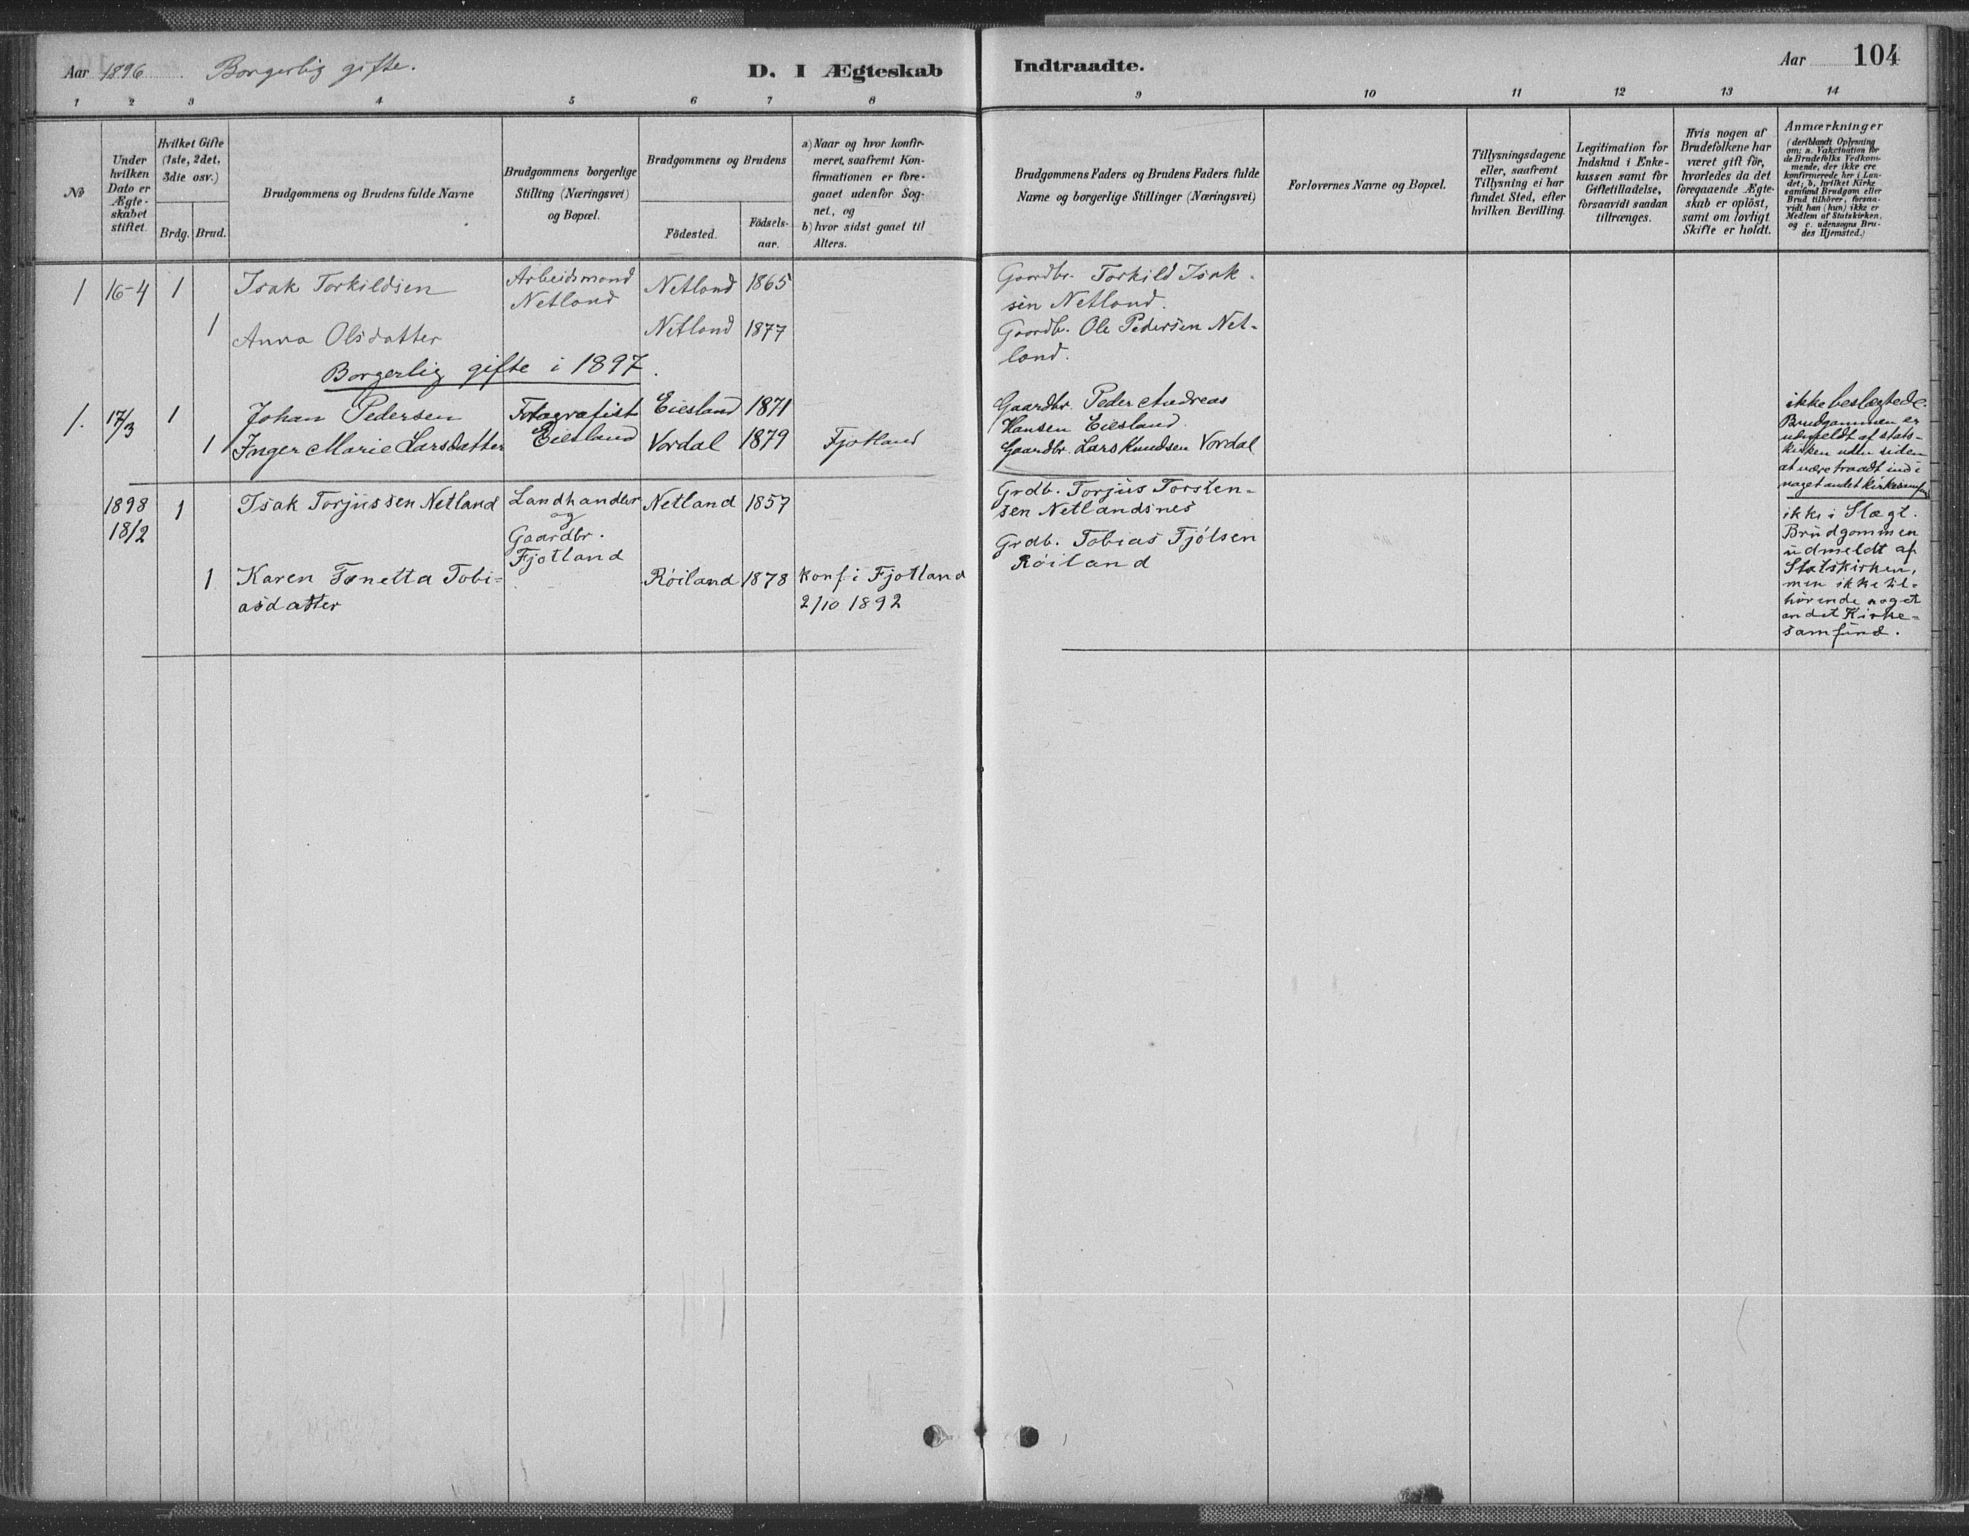 Aar 1896 Borgerlig gifte. D. I Ægteskab Indtraadte. Aar 104
1 2 3 4 5 6 7 8 9 10 11 12 13 14
No
Under
hvilken
Dato er
Ægte-
skabet
stiftet.
Hvilket Gifte
(1ste, 2det,
3die osv.)
Brdg. Brud.
Brudgommens og Brudens fulde Navne
Brudgommens borgerlige
Stilling (Næringsvei)
og Bopæl.
Brudgommens og Brudens
Födested.
Födsels-
aar.
a) Naar og hvor konfir-
meret, saafremt Kon-
firmationen er fore-
gaaet udenfor Sog-
net, og
b) hvor sidst gaaet til
Alters.
Brudgommens Faders og Brudens Faders fulde
Navne og borgerlige Stillinger (Næringsvei)
Forlovernes Navne og Bopæl.
Tillysningsdagene
eller, saafremt
Tillysning ei har
fundet Sted, efter
hvilken Bevilling.
Legitimation for
Indskud i Enke-
kassen samt for
Giftetilladelse,
forsaavidt saadan
tiltrænges.
Hvis nogen af
Brudefolkene har
været gift för,
hvorledes da det
foregaaende Ægte-
skab er oplöst,
samt om lovligt
Skifte er holdt.
Anmærkninger
(deriblandt Oplysning
om: a. Vakcination for
de Brudefolks Vedkom-
mende, der ikke ere
konfirmerede her i Lan-
det; b, hvilket Kirke
samfund Brudgom eller
Brud tilhörer, forsaa-
vidt han (hun) ikke er
Medlem af Statskirken,
og c. udensogns Bru-
des Hjemsted.)
1 16-4 1 Isak Torkildsen
Arbeidsmand
Netland
Netland 1865
Gaardbr. Torkild Isak-
sen Netland.
1 Anna Olsdatter
Netland 1877
Gaardb. Ole Pedersen Net-
land.
Borgerlig gifte i 1897.
1. 17/3 1 Johan Pedersen
Fotografist
Eiesland
Eiesland 1871
Gaardbr. Peder Andreas
Hansen Eiesland.
1 Inger Marie Larsdatter
Vordal 1879 Fjotland
Gaardbr. Lars Knudsen Vordal
ikke beslægtede.
Brudgommen er
udmeldt af stats-
kirken uden siden
at være traadt ind i
noget andet kirkesamfund
1898
18/2
1 Isak Torjussen Netland
Landhandler
og
Gaardbr.
Fjotland
Netland 1857
Grdb. Torjus Torsten-
sen Netlandsnes
1 Karen Tonetta Tobi-
asdatter
Røiland 1878 konf. i Fjotland
2/10 1892
Grdb. Tobias Tjølsen
Røiland
ikke i Slægt.
Brudgommen
udmeldt af
Statskirken,
men ikke til-
hørende noget
andet Kirke-
samfund.